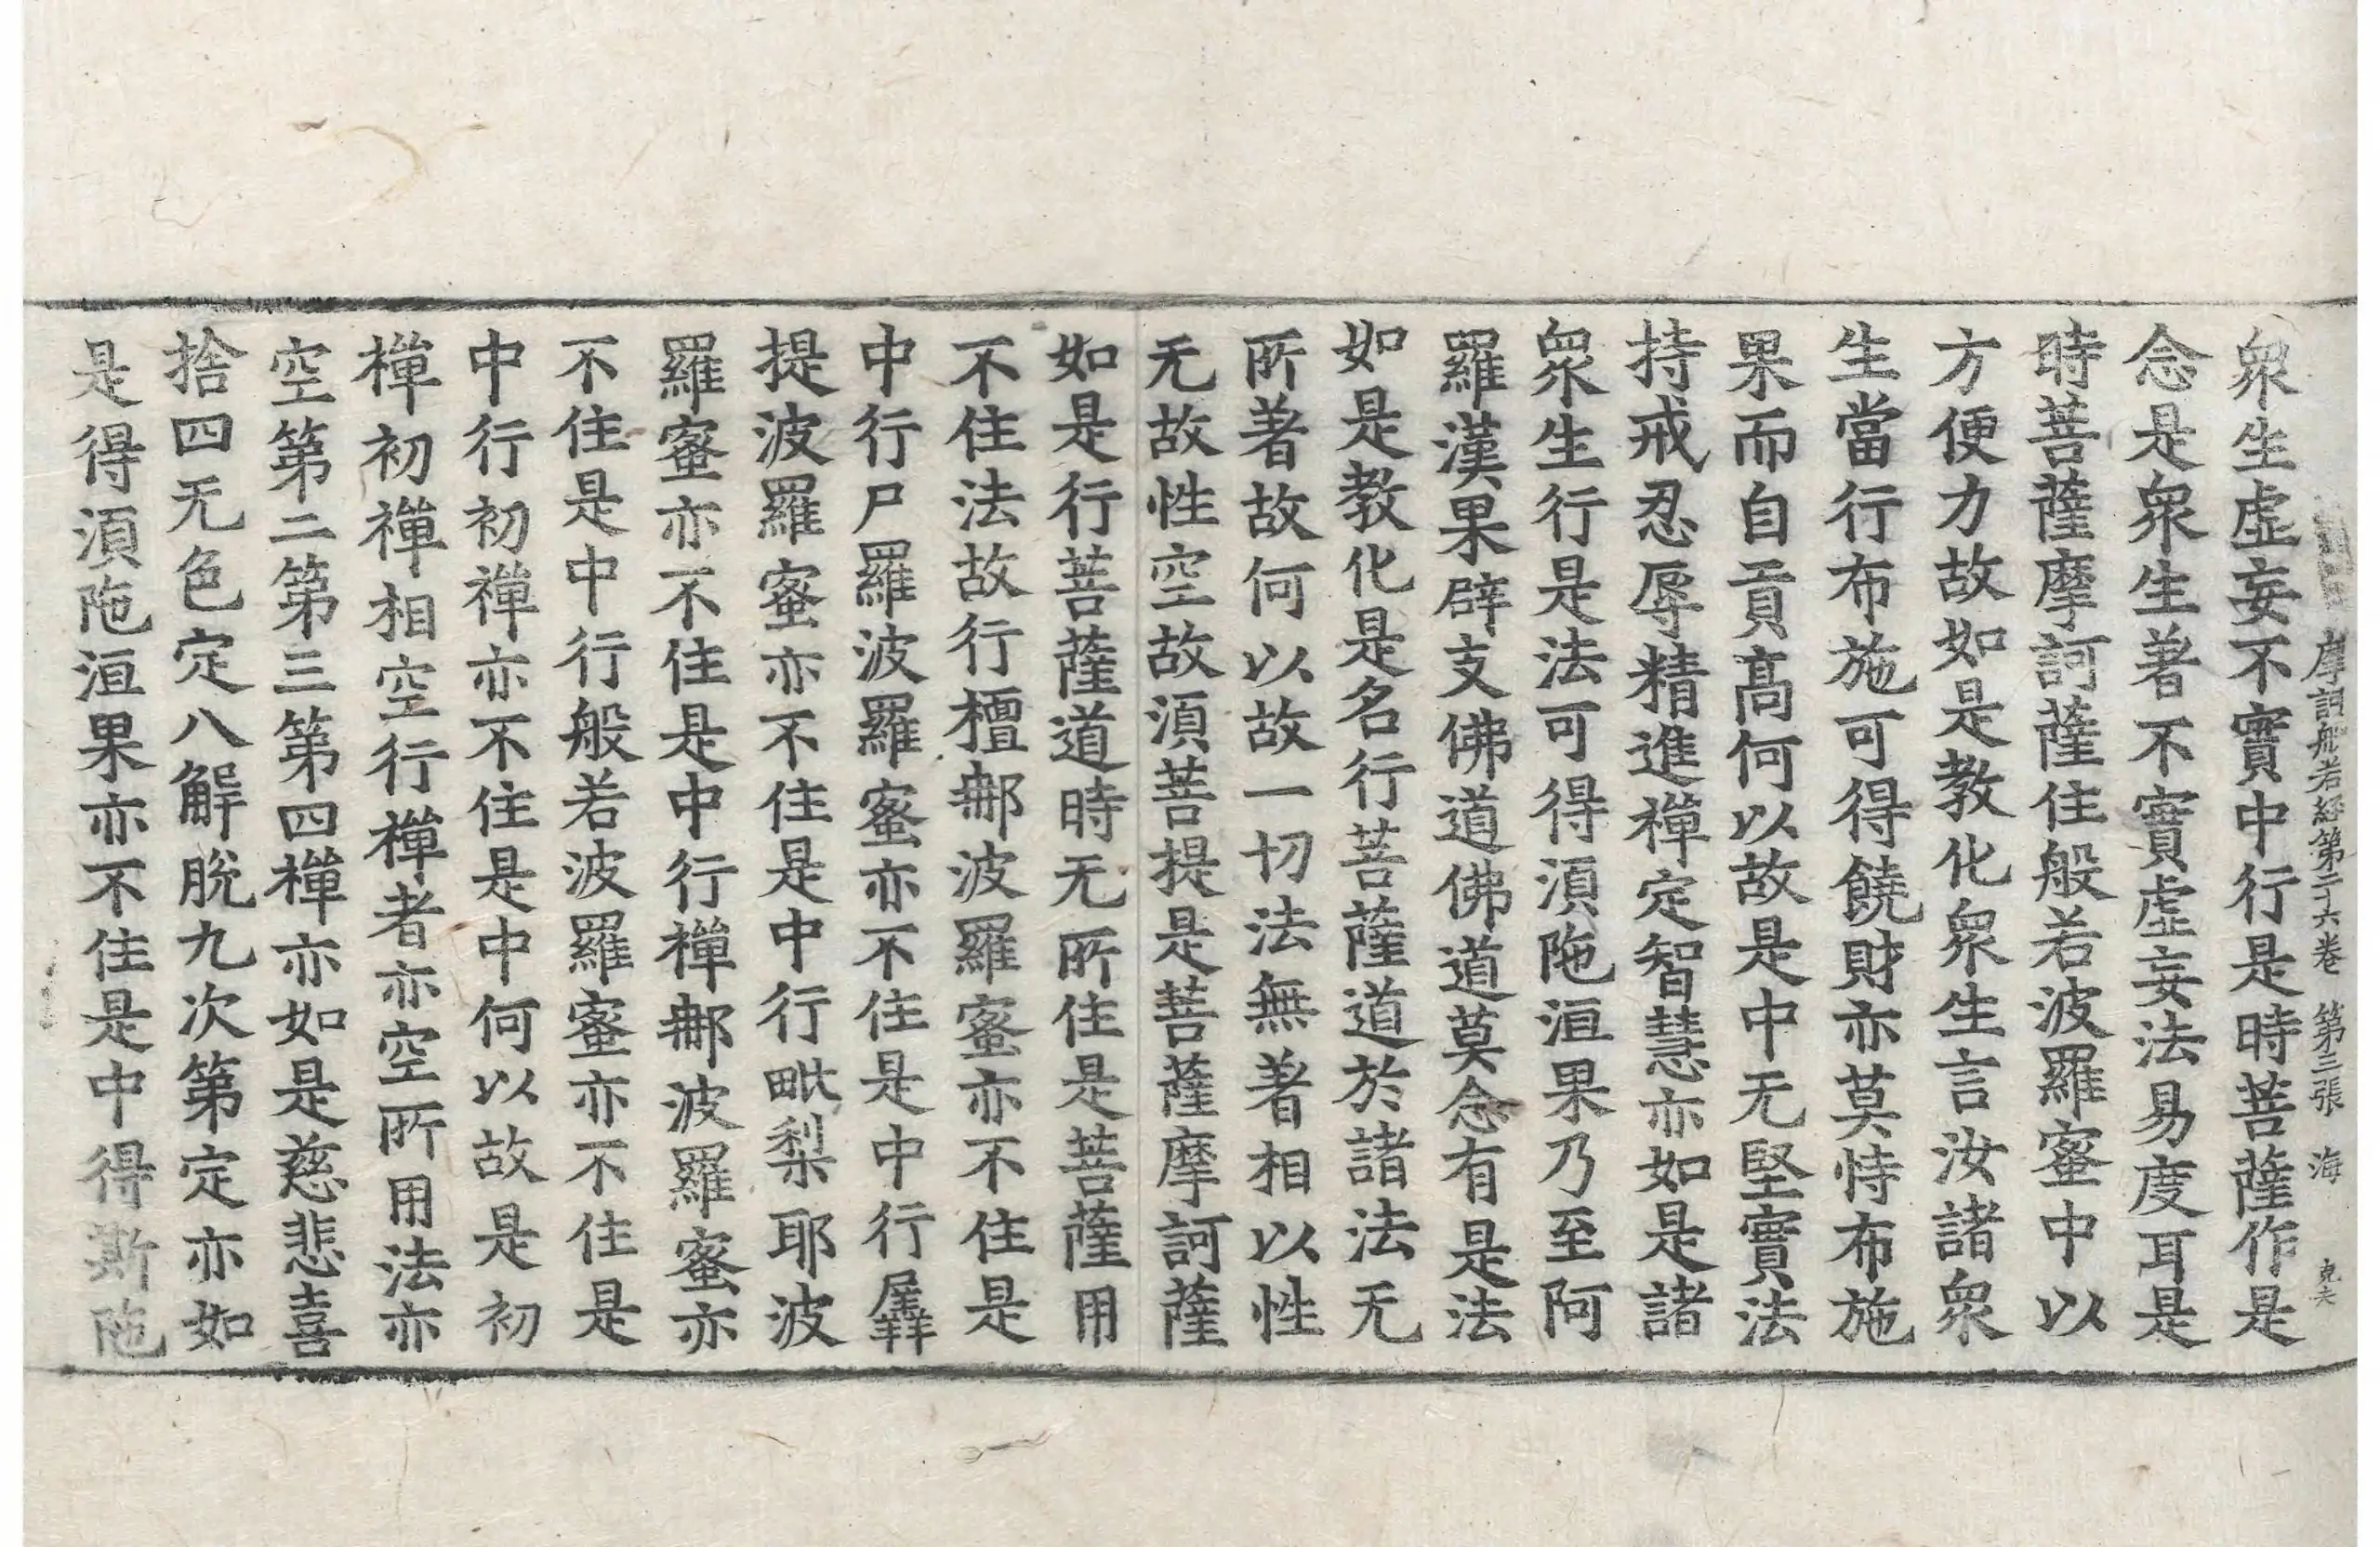 摩訶般若經第二十六卷　第三張　海
衆生虛妄不實中行是時菩薩作是
念是衆生著不實虛妄法易度耳是
時菩薩摩訶薩住般若波羅蜜中以
方便力故如是教化衆生言汝諸衆
生當行布施可得饒財亦莫恃布施
果而自貢高何以故是中无堅實法
持戒忍辱精進禪定智慧亦如是諸
衆生行是法可得湏陁洹果乃至阿
羅漢果辟支佛道佛道莫念有是法
如是教化是名行菩薩道於諸法无
所著故何以故一切法無著相以性
无故性空故湏菩提是菩薩摩訶薩
如是行菩薩道時无所住是菩薩用
不住法故行檀郍波羅蜜亦不住是
中行尸羅波羅蜜亦不住是中行羼
提波羅蜜亦不住是中行毗梨耶波
羅蜜亦不住是中行禪郍波羅蜜亦
不住是中行般若波羅蜜亦不住是
中行初禪亦不住是中何以故是初
禪初禪相空行禪者亦空所用法亦
空第二第三第四禪亦如是慈悲喜
捨四无色定八解脫九次第定亦如
是得湏陁洹果亦不住是中得斯陁